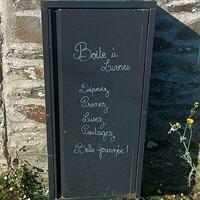 Boîte à
Livres
Déposez
Prenez
Lisez
Partagez
Belle journée !